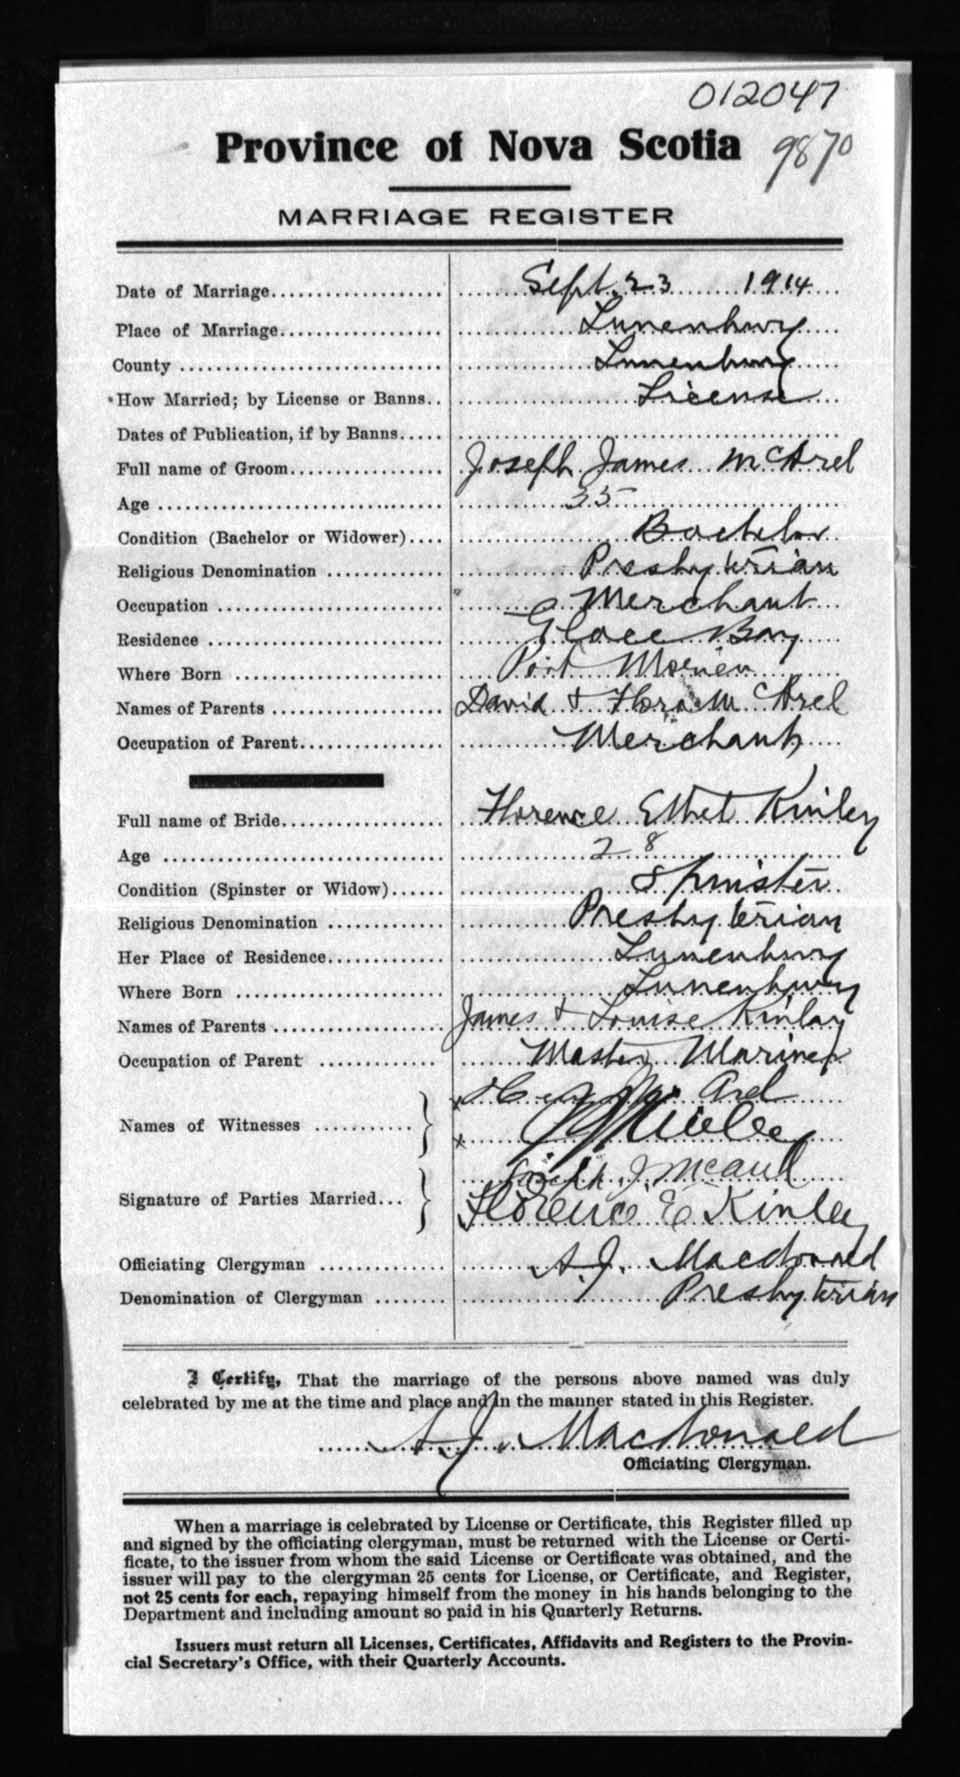 012047
Province of Nova Scotia 9870
MARRIAGE REGISTER
Date of Marriage.................... Sept. 23 1914
Place of Marriage.................. Lunenburg
County ............................. Lunenburg
*How Married; by License or Banns.. License
Dates of Publication, if by Banns.....
Full name of Groom................. Joseph James McArel
Age ................................ 35
Condition (Bachelor or Widower).... Bachelor
Religious Denomination ............. Presbyterian
Occupation ......................... Merchant
Residence .......................... Glace Bay
Where Born ....................... Port Morien
Names of Parents ................... David & Flora McArel
Occupation of Parent................ Merchant
Full name of Bride.................. Florence Ethel Kinley
Age ............................... 28
Condition (Spinster or Widow)...... Spinster
Religious Denomination ............. Presbyterian
Her Place of Residence.............. Lunenburg
Where Born ....................... Lunenburg
Names of Parents ................... James & Louise Kinley
Occupation of Parent .............. Master Mariner
Names of Witnesses ...........
Signature of Parties Married... J.
Florence E Kinley
Officiating Clergyman .............. A.J. Macdonald
Denomination of Clergyman ........ Presbyterian
I Certify, That the marriage of the persons above named was duly
celebrated by me at the time and place and in the manner stated in this Register.
A.J. Macdonald
Officiating Clergyman.
When a marriage is celebrated by License or Certificate, this Register filled up
and signed by the officiating clergyman, must be returned with the License or Certi-
ficate, to the issuer from whom the said License or Certificate was obtained, and the
issuer will pay to the clergyman 25 cents for License, or Certificate, and Register,
not 25 cents for each, repaying himself from the money in his hands belonging to the
Department and including amount so paid in his Quarterly Returns.
Issuers must return all Licenses, Certificates, Affidavits and Registers to the Provin-
cial Secretary's Office, with their Quarterly Accounts.